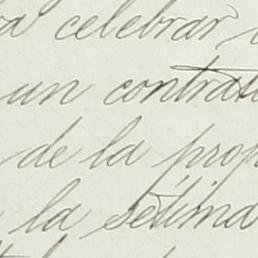 celebrar
un contrato
de la prop
la sétima